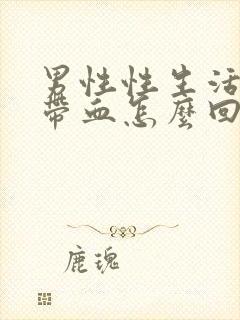 男性性生活
帶血怎麼回
鹿瑰